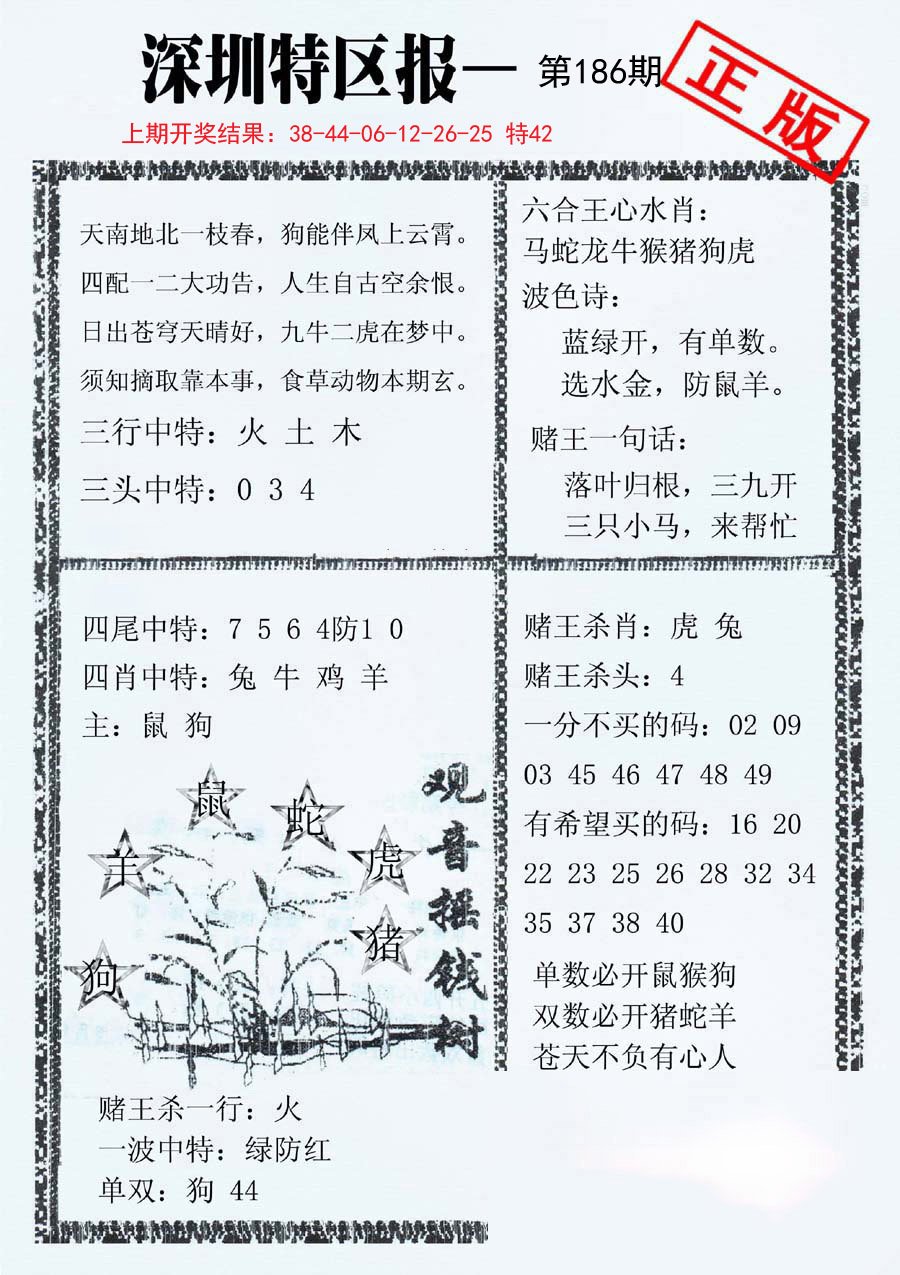 深圳特区报— 第186期
正版
上期开奖结果：38-44-06-12-26-25 特42
天南地北一枝春，狗能伴凤上云霄。
四配一二大功告，人生自古空余恨。
日出苍穹天晴好，九牛二虎在梦中。
须知摘取靠本事，食草动物本期玄。
三行中特：火 土 木
三头中特：0 3 4
六合王心水肖：
马蛇龙牛猴猪狗虎
波色诗：
蓝绿开，有单数。
选水金，防鼠羊。
赌王一句话：
落叶归根，三九开
三只小马，来帮忙
四尾中特：7 5 6 4防1 0
四肖中特：兔 牛 鸡 羊
主：鼠 狗
鼠
蛇
羊
虎
猪
狗
观音摇钱树
赌王杀一行：火
一波中特：绿防红
单双：狗 44
赌王杀肖：虎 兔
赌王杀头：4
一分不买的码：02 09
03 45 46 47 48 49
有希望买的码：16 20
22 23 25 26 28 32 34
35 37 38 40
单数必开鼠猴狗
双数必开猪蛇羊
苍天不负有心人